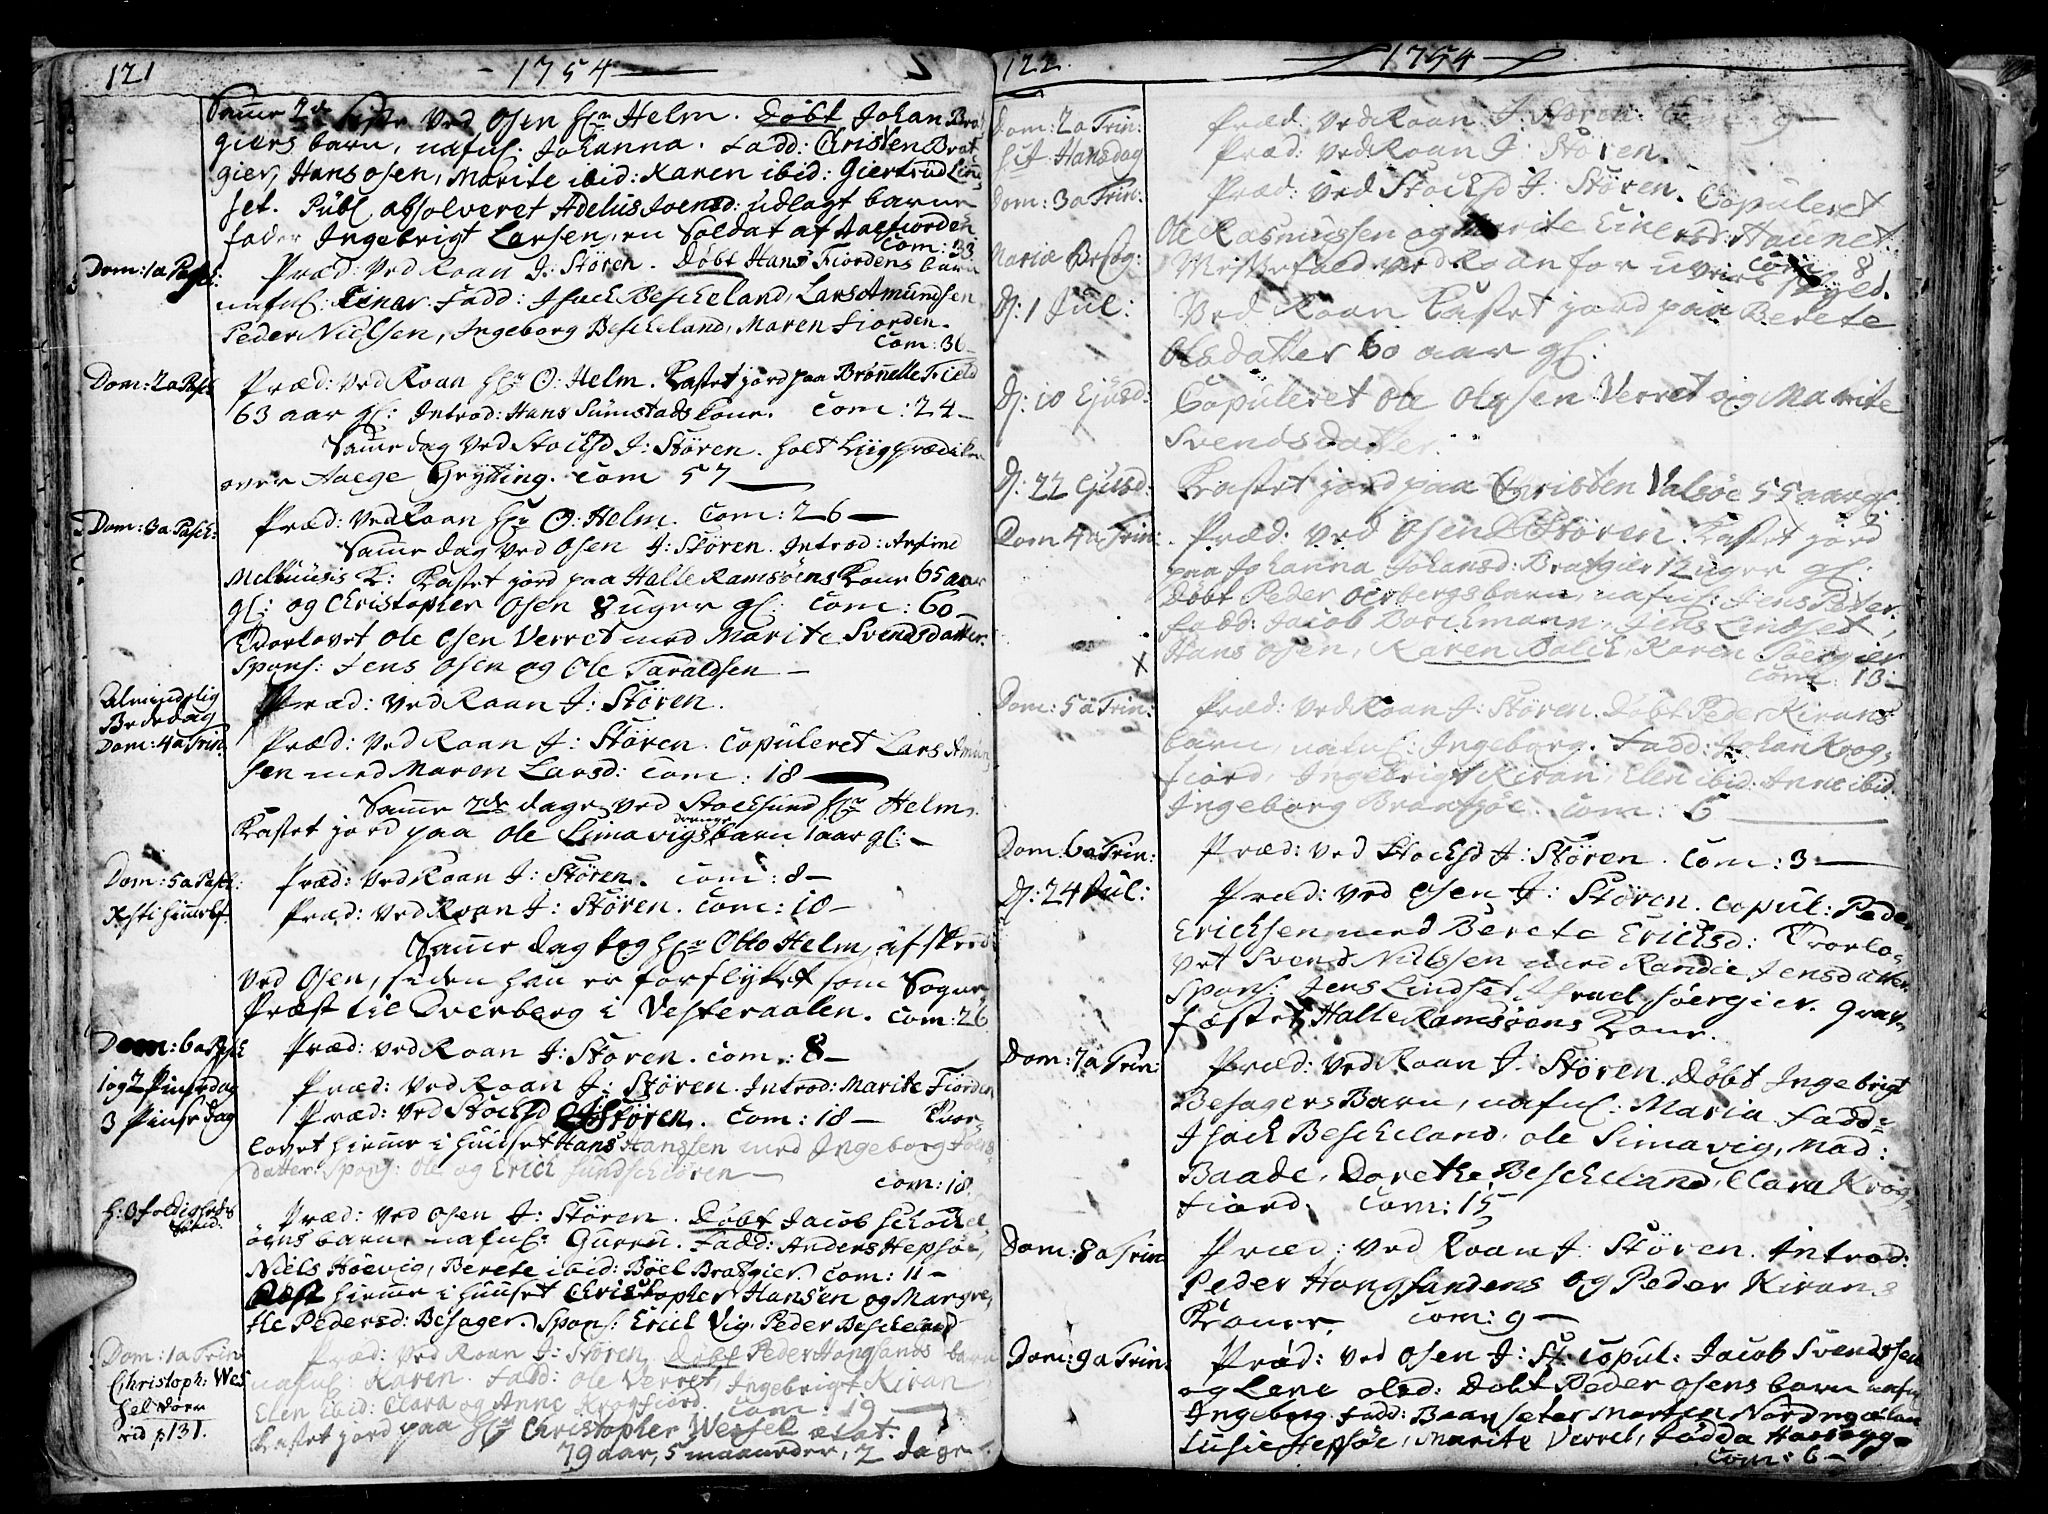 121 - 1754 -
Samme 2de Siste ved Osen Hr Helm. Døbt Johan Brat
giers barn, nafnl. Johanna. Fadd: Christen Brat
gier, Hans Osen, Marite ibid: Karen ibid: Giertrud Lind
set. Publ absolveret Adelus Joensd: udlagt barne
fader Ingebrigt Larsen, en Soldat af
Com: 33
Dom: 1 a Pasch: Præd: ved Roan J: Stören. Døbt Hans Fiordens barn
nafnl: Einar. Fadd: Isach Bescheland, Lars Amundsen
Peder Nielsen, Ingeborg Bescheland, Maren Fiorden.
Com: 36
Dom: 2 a Pasch Præd: ved Roan Hr O: Helm. Kastet jord paa Brønelle Field
63 aar gl: Introd: Hans Sumstads kone. Com: 24 -
Samme dag ved Stocksd J: Stören. holt Liigprædiken
over Aage Grytting. Com 57
Dom: 3 a Pasch: Præd: ved Roan Hr O: Helm. Com: 26 -
Samme dag ved Osen J: Stören. Introd:
K: Kastet jord paa Halle Ramsøens kone 65 aar
gl: og Christopher Osen 8 uger gl: Com: 60 -
Trorlovet Ole Osen Verret med Marite Svendsdatter.
Spons: Jens Osen og Ole Taraldsen -
Almindelig
Bededag Præd: ved Roan J: Stören.
Dom: 4 a Trin. Præd: ved Roan J: Stören. Copuleret Lars Amun
sen med Maren Larsd: Com: 18 -
Samme 2de dage ved Stocksund Hr Helm.
Kastet jord paa Ole Simavigs drenge barn 1 aar gl: -
Dom: 5 a Pasch: Præd: ved Roan J: Stören. Com: 8 -
Xsti himmelf. Præd: ved Roan J: Stören. Com: 18 -
Samme dag tog Hr Otto Helm, afskeed
ved Osen, siden han er forflyttet som Sogne
Præst til Overberg i Vesteraalen. Com: 26
Dom: 6 a Pasch Præd: ved Roan J: Stören. Com: 8 -
1 og 2 Pinsedag Præd: ved Roan J: Stören. Introd: Marite Fiorden
3 Pinsedag Præd: ved Stocksd J Stören. Com: 18 - Tror-
lovet hiemme i huuset Hans Hanssen med Ingeborg
datter. Spons: Ole og Erich
Com: 18
H: 3foldigheds
Præd: ved Osen J: Stören. Døbt Jacob
öens barn nafnl: Guren. Fadd: Anders Hepsöe,
Niels Höevig, Berete ibid: Böel Bratgier. Com: 11 -
hiemme i huuset Christopher Hansen og Margre-
the Pedersd: Besager. Spons: Erich Vig. Peder Bescheland
Dom: 1 a Trin Præd: ved Roan J: Stören. Døbt Peder Hongsands barn
Christoph: Wes
sel
vid p 131.
nafnl: Karen. Fadd: Ole Verret, Ingebrigt Kiran
Elen ibid: Clara og Anne Krogfiord. Com: 19 -
Kastet jord paa Hr Christopher Wessel ætat.
79 aar, 5 maaneder, 2 dage.
122. 1754
Dom: 2 a Trin: Præd: ved Roan J: Stören. Com: 9 -
Sct Hansdag Præd: ved Roan J: Stören.
Dom: 3 a Trin: Præd: ved Stocksd J: Stören. Copuleret
Ole Rasmussen og Marite Einersd: Haunet.
Com 8
Mariæ Besög: Messefald ved Roan for uveirs skyld.
D: 1 Jul: Ved Roan Kastet jord paa Berete
Olsdatter 60 aar gl:
D: 10 Ejusd: Copuleret Ole Olssen Verret og Marite
Svendsdatter.
D: 22 Ejusd: Kastet jord paa Christen Valsöe 55 aar gl:
Dom 4 a Trin: Præd: ved Osen J Stören. Kastet jord
paa Johanna Johansd: Bratgier 12 uger gl:
Døbt Peder Oerbergs barn, nafnl: Jens Peter.
Fadd: Jacob Borchmann, Jens Lindset,
Hans Osen, Karen Balch, Karen
Com: 13 -
Dom: 5 a Trin: Præd: ved Roan J: Stören. Døbt Peder Kirans
barn, nafnl: Ingeborg. Fadd: Johan Krog-
fiord, Ingebrigt Kiran, Elen ibid. Anne ibid.
Ingeborg Com: 6
Dom: 6 a Trin: Præd: ved Stocksd J: Stören. Com: 3 -
D: 24 Jul: Præd: ved Osen J: Stören. Copul: Peder
Ericksen med Berete Ericksd: Trorlo-
vet Svend Nielssen med Randie Jensdatter.
Spons: Jens Lindset, Israel Söergier. Grav-
fæstet Halle Ramsöens Kone.
Dom: 7 a Trin: Præd: ved Roan J: Stören. Døbt Ingebrigt
Besagers Barn, nafnl: Maria Fadd:
Isach Bescheland, Ole Simavig, Mad:
Baade, Dorethe Bescheland, Clara Krog-
fiord. Com: 15
Dom: 8 a Trin Præd: ved Roan J: Stören. Introd:
Peder Hongsandens og Peder Kirans
Koner. Com: 9 -
Dom: 9 a Trin: Præd: ved Osen J: St: Copul: Jacob Svendssen
og Lene Olsd: Døbt Peder Osens barn nafnl
Ingeborg Fadd: Morten
Lusie Hepsöe, Marite Verret,
Com: 6 -